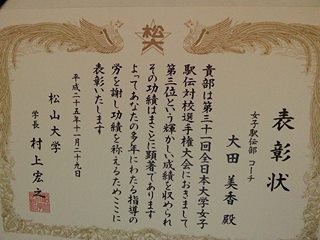 松大
表彰状
女子駅伝部 コーチ
大田 美香 殿
貴部は第三十一回全日本大学女子
駅伝対校選手権大会におきまして
第三位という輝かしい成績を収められ
その功績はまことに顕著であります
よってあなたの多年にわたる指導の
労を謝し功績を称えるためここに
表彰いたします
平成二十五年十一月二十九日
松山大学
学長 村上宏之